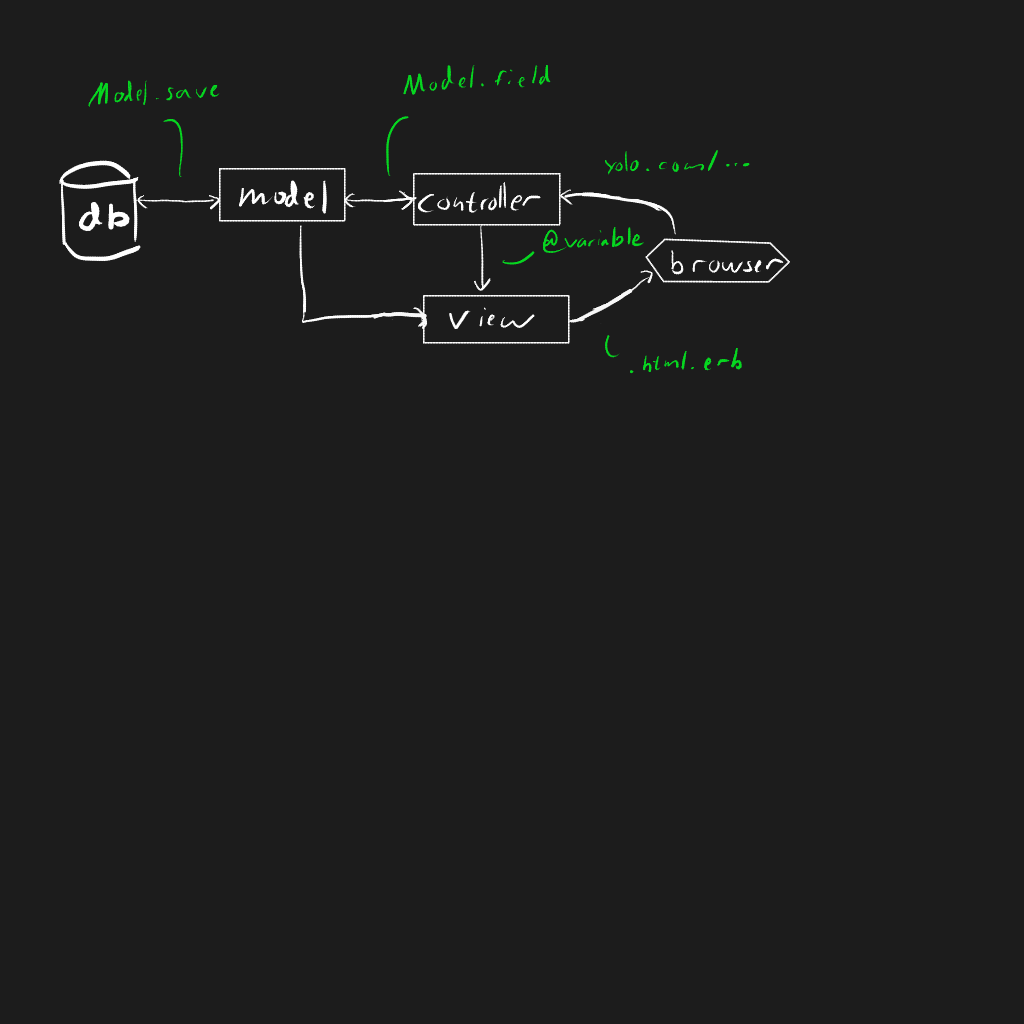 Model.save
Model.field
yolo.com/...
db
model
controller
@variable
browser
view
.html.erb